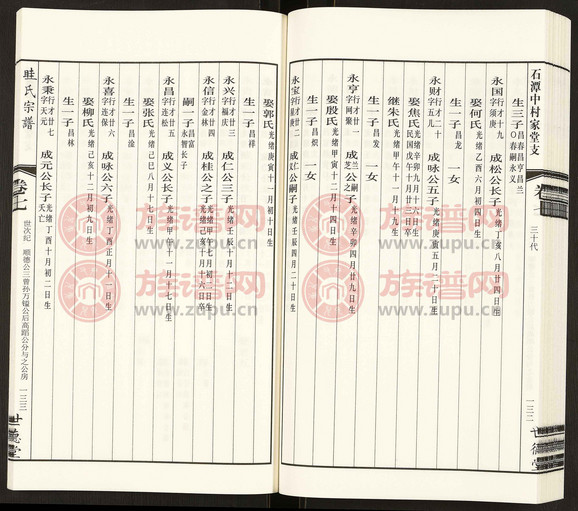 石潭中村家堂支
卷七
三十代
一三二
世德堂
生三子 昌春 昌亨 昌兰 〇春嗣永义
永国 行才十九 字须庚 成松公长子 光绪丁亥八月廿四日生
娶何氏 光绪乙酉六月初四日生
生一子 昌龙 一女
永财 行才二十 字五儿 成咏公五子 光绪庚寅五月二日生
娶焦氏
继朱氏 光绪甲午十一月初一日生
生一子 昌发
永亨 成芝公之子 光绪辛卯四月廿九日生
娶殷氏 光绪甲寅十二月十四日生
生一子 昌炽 一女
永宝 光绪壬辰四月二十日生
娶郭氏 光绪庚寅十一月初十日生
生一子 昌祥
永兴 行才廿三 字福庆 成仁公三子 光绪壬辰十月廿一日生
永信 行才廿四 字金林 成桂公之子
嗣一子 昌富 永智长子
永昌 行才廿五 字连松 成义公长子 光绪甲午十一月十七日生
娶张氏 光绪己亥八月十七日生
生一子 昌淦
永喜 行才廿六 字连保 成咏公六子 光绪丁酉正月十一日生
娶柳氏 光绪己亥十二月初九日生
生一子 昌林
永秉 行才廿七 字天元 成元公长子 光绪丁酉十月初二日生 天亡
眭氏宗谱
卷七
世次纪 顺德公三曾孙万镒公后高蹈公分与之公房
一三三
世德堂
族谱网
www.zupu.cn
族谱网
www.zupu.cn
族谱网
www.zupu.cn
族谱网
www.zupu.cn